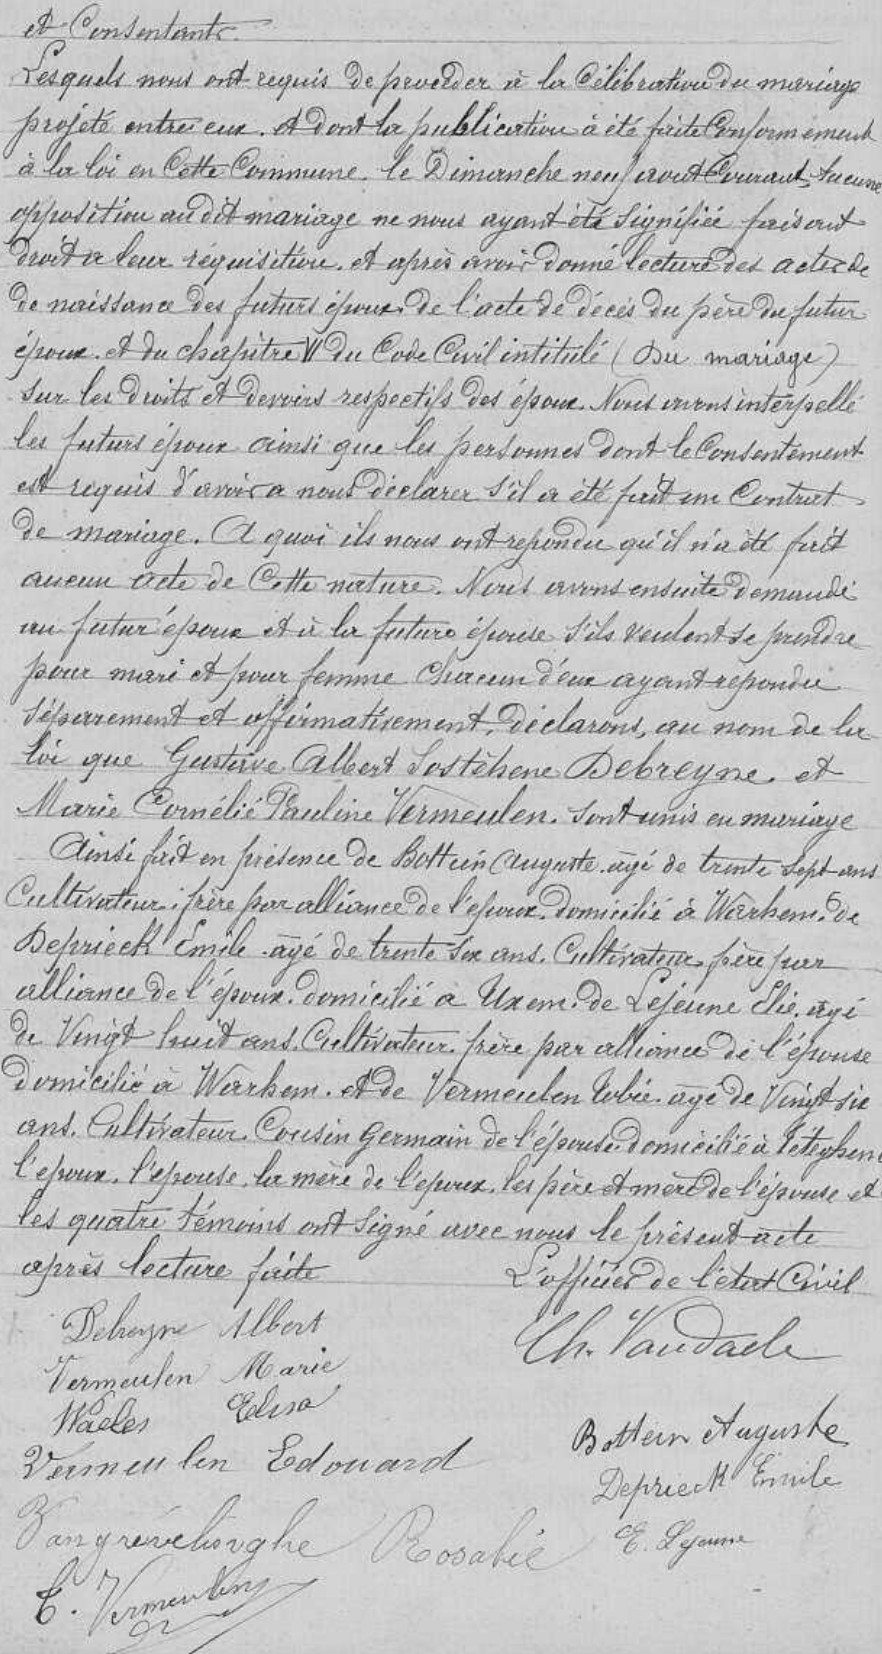 et Consentants.
Lesquels nous ont requis de procéder à la Célébration du mariage
projeté entre eux. et dont la publication à été faite Conformement
à la loi en Cette Commune. le Dimanche neuf aout Courant. Aucune
opposition au dit mariage ne nous ayant été signifiée faisant
droit a leur réquisition. et après avoir donné lecture des actes de
de naissance des futurs époux. de l'acte de décés du père du futur
époux. et du chapitre VI du Code Civil intitulé (Du mariage)
sur les droits et devoirs respectifs des époux. Nous avons interpellé
les futurs époux ainsi que les personnes dont le Consentement
est requis d'avoir a nous déclarer s'il a été fait un Contrat
de mariage. A quoi ils nous ont repondu qu'il n'a été fait
aucun acte de Cette nature. Nous avons ensuite demandé
au futur époux et à la future épouse s'ils veulent se prendre
pour mari et pour femme chacun d'eux ayant repondu
séparement et affirmativement, déclarons, au nom de la
loi que Gustave Albert Sostèhene Debreyne. et
Marie Cornélie Pauline Vermeulen. sont unis en mariage
Ainsi fait en présence de Bottein Auguste. agé de trente sept ans
Cultivateur. frère par alliance de l'époux. domicilié à Warhem. de
Deprieck Emile agé de trente six ans. Cultivateur. frère par
alliance de l'époux. domicilié a Uxem. de Lejeune Elie. agé
de Vingt huit ans. Cultivateur. frère par alliance de l'épouse
domicilié à Warhem. et de Vermeulen Tobie. agé de Vingt six
ans. Cultivateur. Cousin Germain de l'épouse. domicilié à Téteghem
l'epoux. l'epouse. la mère de l'epoux. les père et mère de l'épouse et
les quatre témoins ont signé avec nous le présent acte
après lecture faite
L'officier de l'état Civil
Debreyne Albert
Ch. Vandaele
Vermeulen Marie
Waeles Elisa
Bottein Auguste
Vermeulen Edouard
Deprieck Emile
Vangrevelinghe Rosalie
E. Lejeune
T. Vermeulen